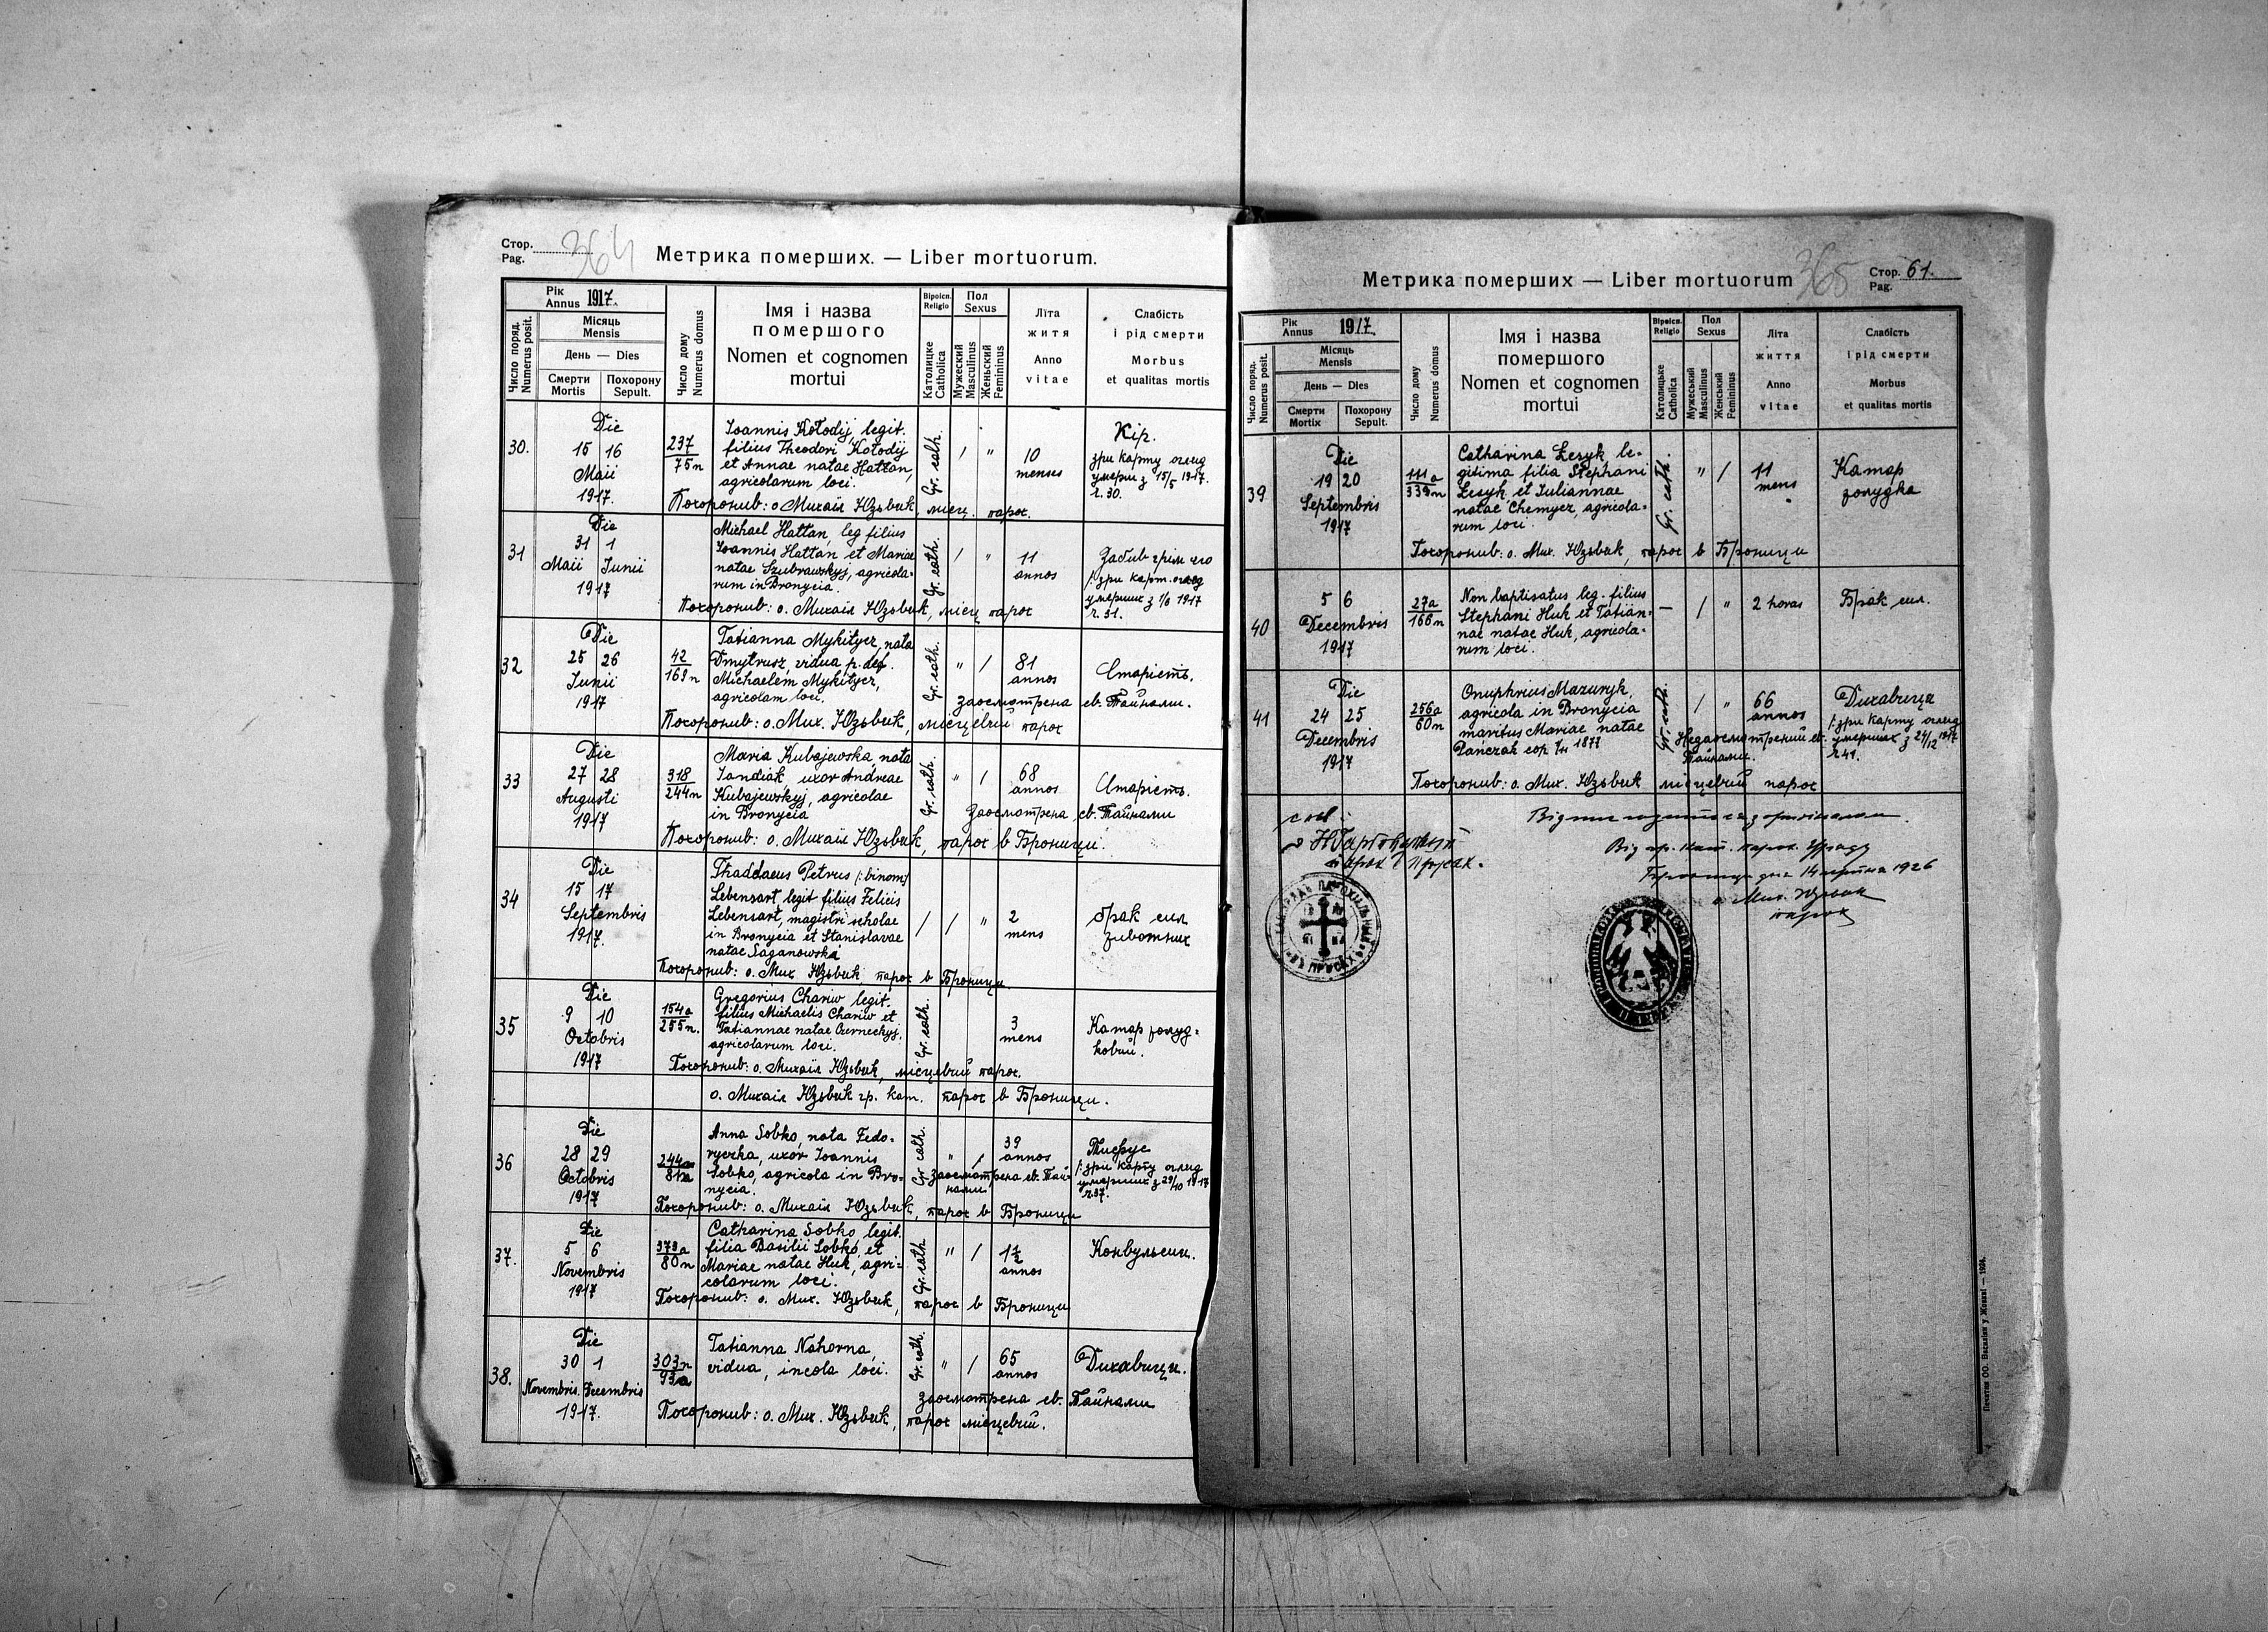 Стор.
Pag.
364
Метрика померших. — Liber mortuorum.
Рік
Annus 1917.
Число поряд.
Numerus posit.
Місяць
Mensis
День — Dies
Смерти
Mortis
Похорону
Sepult.
Число дому
Numerus domus
Імя і назва
помершого
Nomen et cognomen
mortui
Віроісп.
Religio
Католицке
Catholica
Пол
Sexus
Мужеский
Masculinus
Женьский
Femininus
Літа
житя
Anno
vitae
Слабість
і рід смерти
Morbus
et qualitas mortis
30.
Die
15 16
Maii
1917.
237
75n
Joannis Kołodij, legit.
filius Theodori Kołodij
et Annae natae Hattan,
agricolarum loci.
Gr. cath.
/ "
10
menses
Кір.
зри карту огляд
умерш з 15/5 1917.
ч. 30.
Похоронив: о Михаіл Юзьвик, місц. парох.
31
Die
31 1
Maii Junii
1917
Michael Hattan, leg filius
Joannis Hattan et Mariae
natae Szubrawskyj, agricola-
rum in Bronycia.
Gr. cath.
/ "
11
annos
Забив грім
/: зри карт. огляд
умерших з 1/6 1917
ч. 31.
Похоронив: о. Михаіл Юзьвик, місц парох
32
Die
25 26
Junii
1917
42
169n
Tatianna Mykityez, nata
Dmytrusz, vidua p. def.
Michaelem Mykityez,
agricolam loci.
Gr. cath.
" /
81
annos
Старість.
Заосмотрена св. Тайнами.
Похоронив: о. Мих. Юзьвик, місцевий парох
33
Die
27 28
Augusti
1917
318
244n
Maria Kubajewska, nata
Jandiak, uxor Andreae
Kubajewskyj, agricolae
in Bronycia
Gr. cath.
" /
68
annos
Старість.
Заосмотрена св. Тайнами
Похоронив: о. Михаіл Юзьвик, парох вБроници.
34
Die
15 17
Septembris
1917.
Thaddaeus Petrus /: binom/
Lebensart, legit filius Felicis
Lebensart, magistri scholae
in Bronycia et Stanislavae
natae Saganowska
/ / "
2
mens
брак сил
животних
Похоронив: о. Мих Юзьвик, парох в Броници.
35
Die
9 10
Octobris
1917
154a
255n.
Gregorius Chariw legit.
filius Michaelis Chariw et
Tatiannae natae Czerneckyj,
agricolarum loci.
Gr. cath.
3
mens
Катар жолуд-
ковий.
Похоронив: о. Михаіл Юзьвик, місцевий парох.
о. Михаіл Юзьвик гр. кат. парох в Броници.
36
Die
28 29
Octobris
1917
244
81
Anna Sobko, nata Fedo-
ryczka, uxor Joannis
Sobko, agricola in Bro-
nycia.
Gr cath.
" /
39
annos
Тифус
/: зри карту огляд
умерших з 29/10 1917
ч 37.
Заосмотрена св. Тай-
нами
Похоронив: о. Михаіл Юзьвик, парох в Броници
37.
Die
5 6
Novembris
1917
373a
80n
Catharina Sobko, legit.
filia Basilii Sobko, et
Mariae natae Huk, agri-
colarum loci.
Gr. cath
" /
1½
annos
Конвульсии.
Похоронив: о. Мих. Юзьвик, парох в Броници
38.
Die
30 1
Novembris. Decembris
1917.
303n
93a
Tatianna Nahorna,
vidua, incola loci.
Gr. cath.
" /
65
annos
Дихавици.
заосмотрена св. Тайнами
Похоронив: о. Мих. Юзьвик, парох місцевий.
Метрика померших — Liber mortuorum
365
Стор.
Pag. 61.
Рік
Annus 1917.
Число поряд.
Numerus posit.
Місяць
Mensis
День — Dies
Смерти
Mortix
Похорону
Sepult.
Число дому
Numerus domus
Імя і назва
помершого
Nomen et cognomen
mortui
Віроісп.
Religio
Католицьке
Catholica
Пол
Sexus
Мужеський
Masculinus
Женьский
Femininus
Літа
життя
Anno
vitae
Слабість
і рід смерти
Morbus
et qualitas mortis
39
Die
19 20
Septembris
1917
111a
339n
Catharina Łesyk, le-
gitima filia Stephani
Łesyk, et Juliannae
natae Chemyez, agricola-
rum loci.
Gr. cath.
" /
11
mens
Катар
золудка
Похоронив: о. Мих. Юзьвик, парох в Броници
40
5 6
Decembris
1917
27a
166n
Non baptisatus leg. filius
Stephani Huk et Tatian-
nae natae Huk, agricola-
rum loci.
— / "
2 horas
Брак сил.
41
Die
24 25
Decembris
1917
256a
60n
Onuphrius Mazuryk,
agricola in Bronycia
maritus Mariae natae
Pańczak cop. 1877
Gr. cath.
/ "
66
annos
Дихавица
/: зри карту огляд
умерших з 24/12 1917
ч 41.
Недаосмотрений св.
Тайнами.
Похоронив: о. Мих. Юзьвик місцевий парох
Від гр. кат. парох. Уряду
1926
о. Мих. Юзьвик
парох
Печатня ОО. Василіян у Жовкві — 1924.